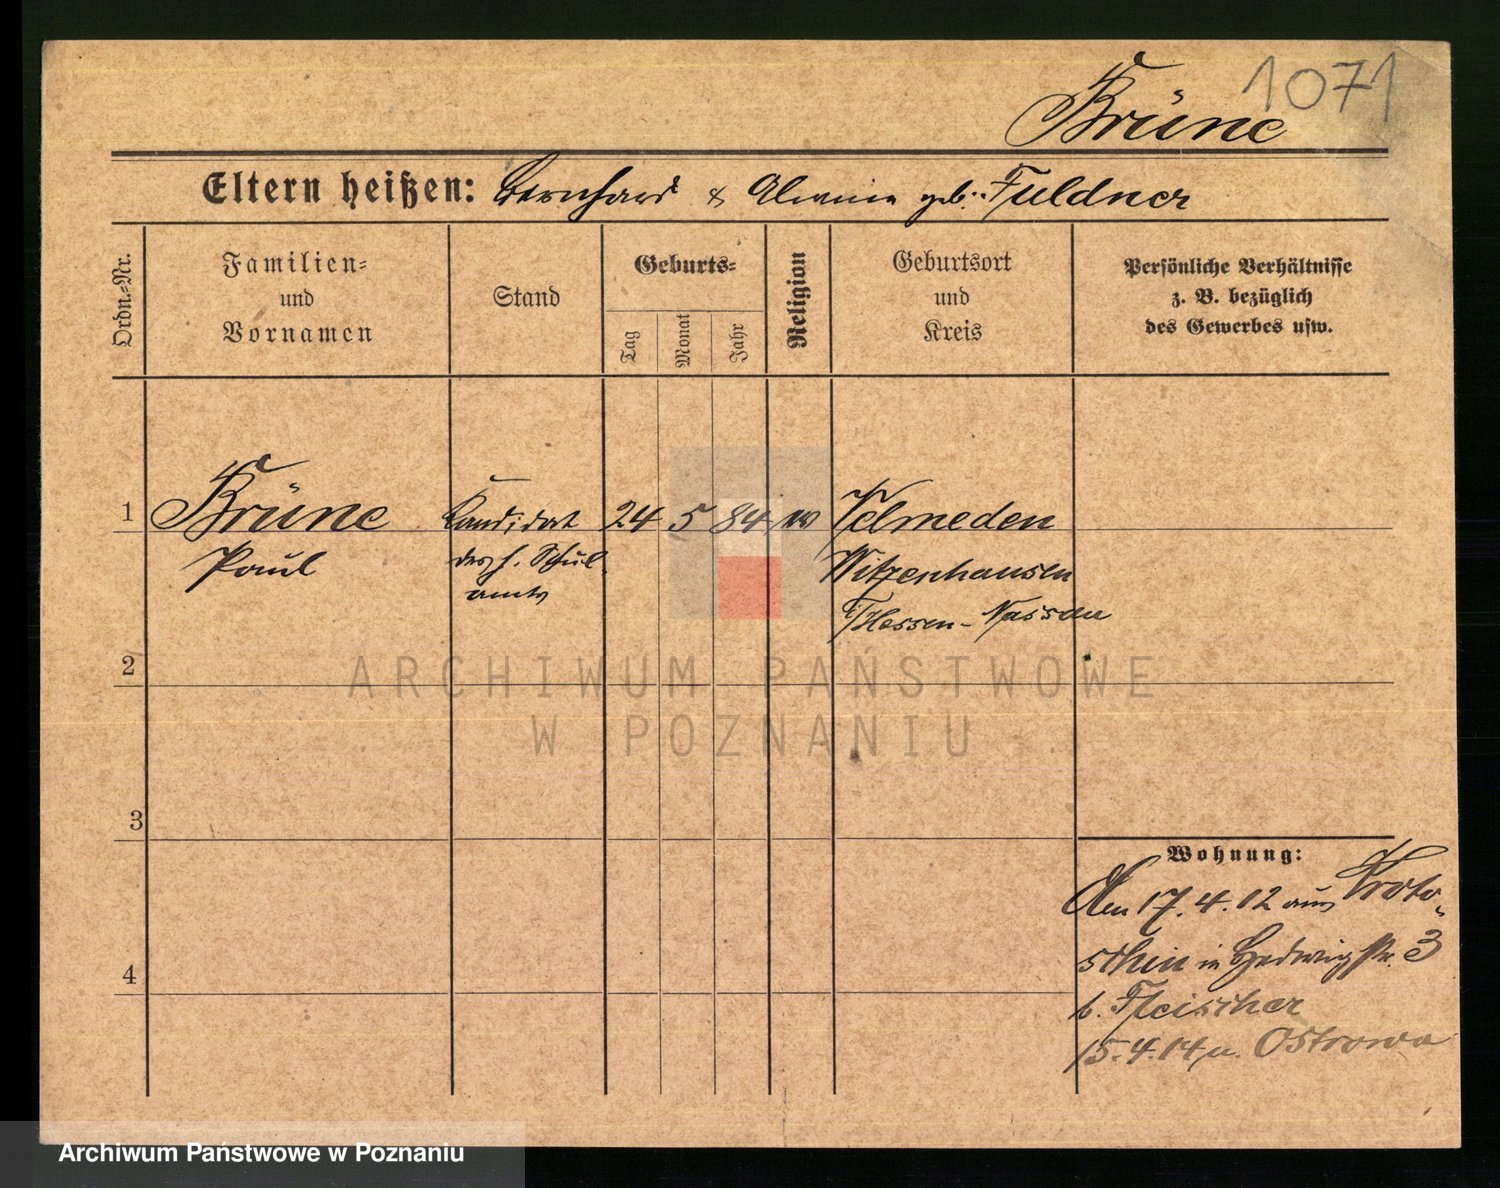 1071
Brüne
Eltern heißen: Bernhard & geb. Fuldner
Ordn.-Nr.
Familien-
und
Vornamen
Stand
Geburts-
Tag
Monat
Jahr
Religion
Geburtsort
und
Kreis
Persönliche Verhältnisse
z. B. bezüglich
des Gewerbes usw.
1 Brüne Kandidat 24 5 84 Velmeden
Paul des h. Schul- Witzenhausen
amts i/Hessen-Nassau
2
ARCHIWUM PAŃSTWOWE
W POZNANIU
3
Wohnung:
Am 17.4.12 aus Kroto-
schin in Hedwigstr. 3
4
b. Fleischer
15.4.14 n. Ostrowo
Archiwum Państwowe w Poznaniu